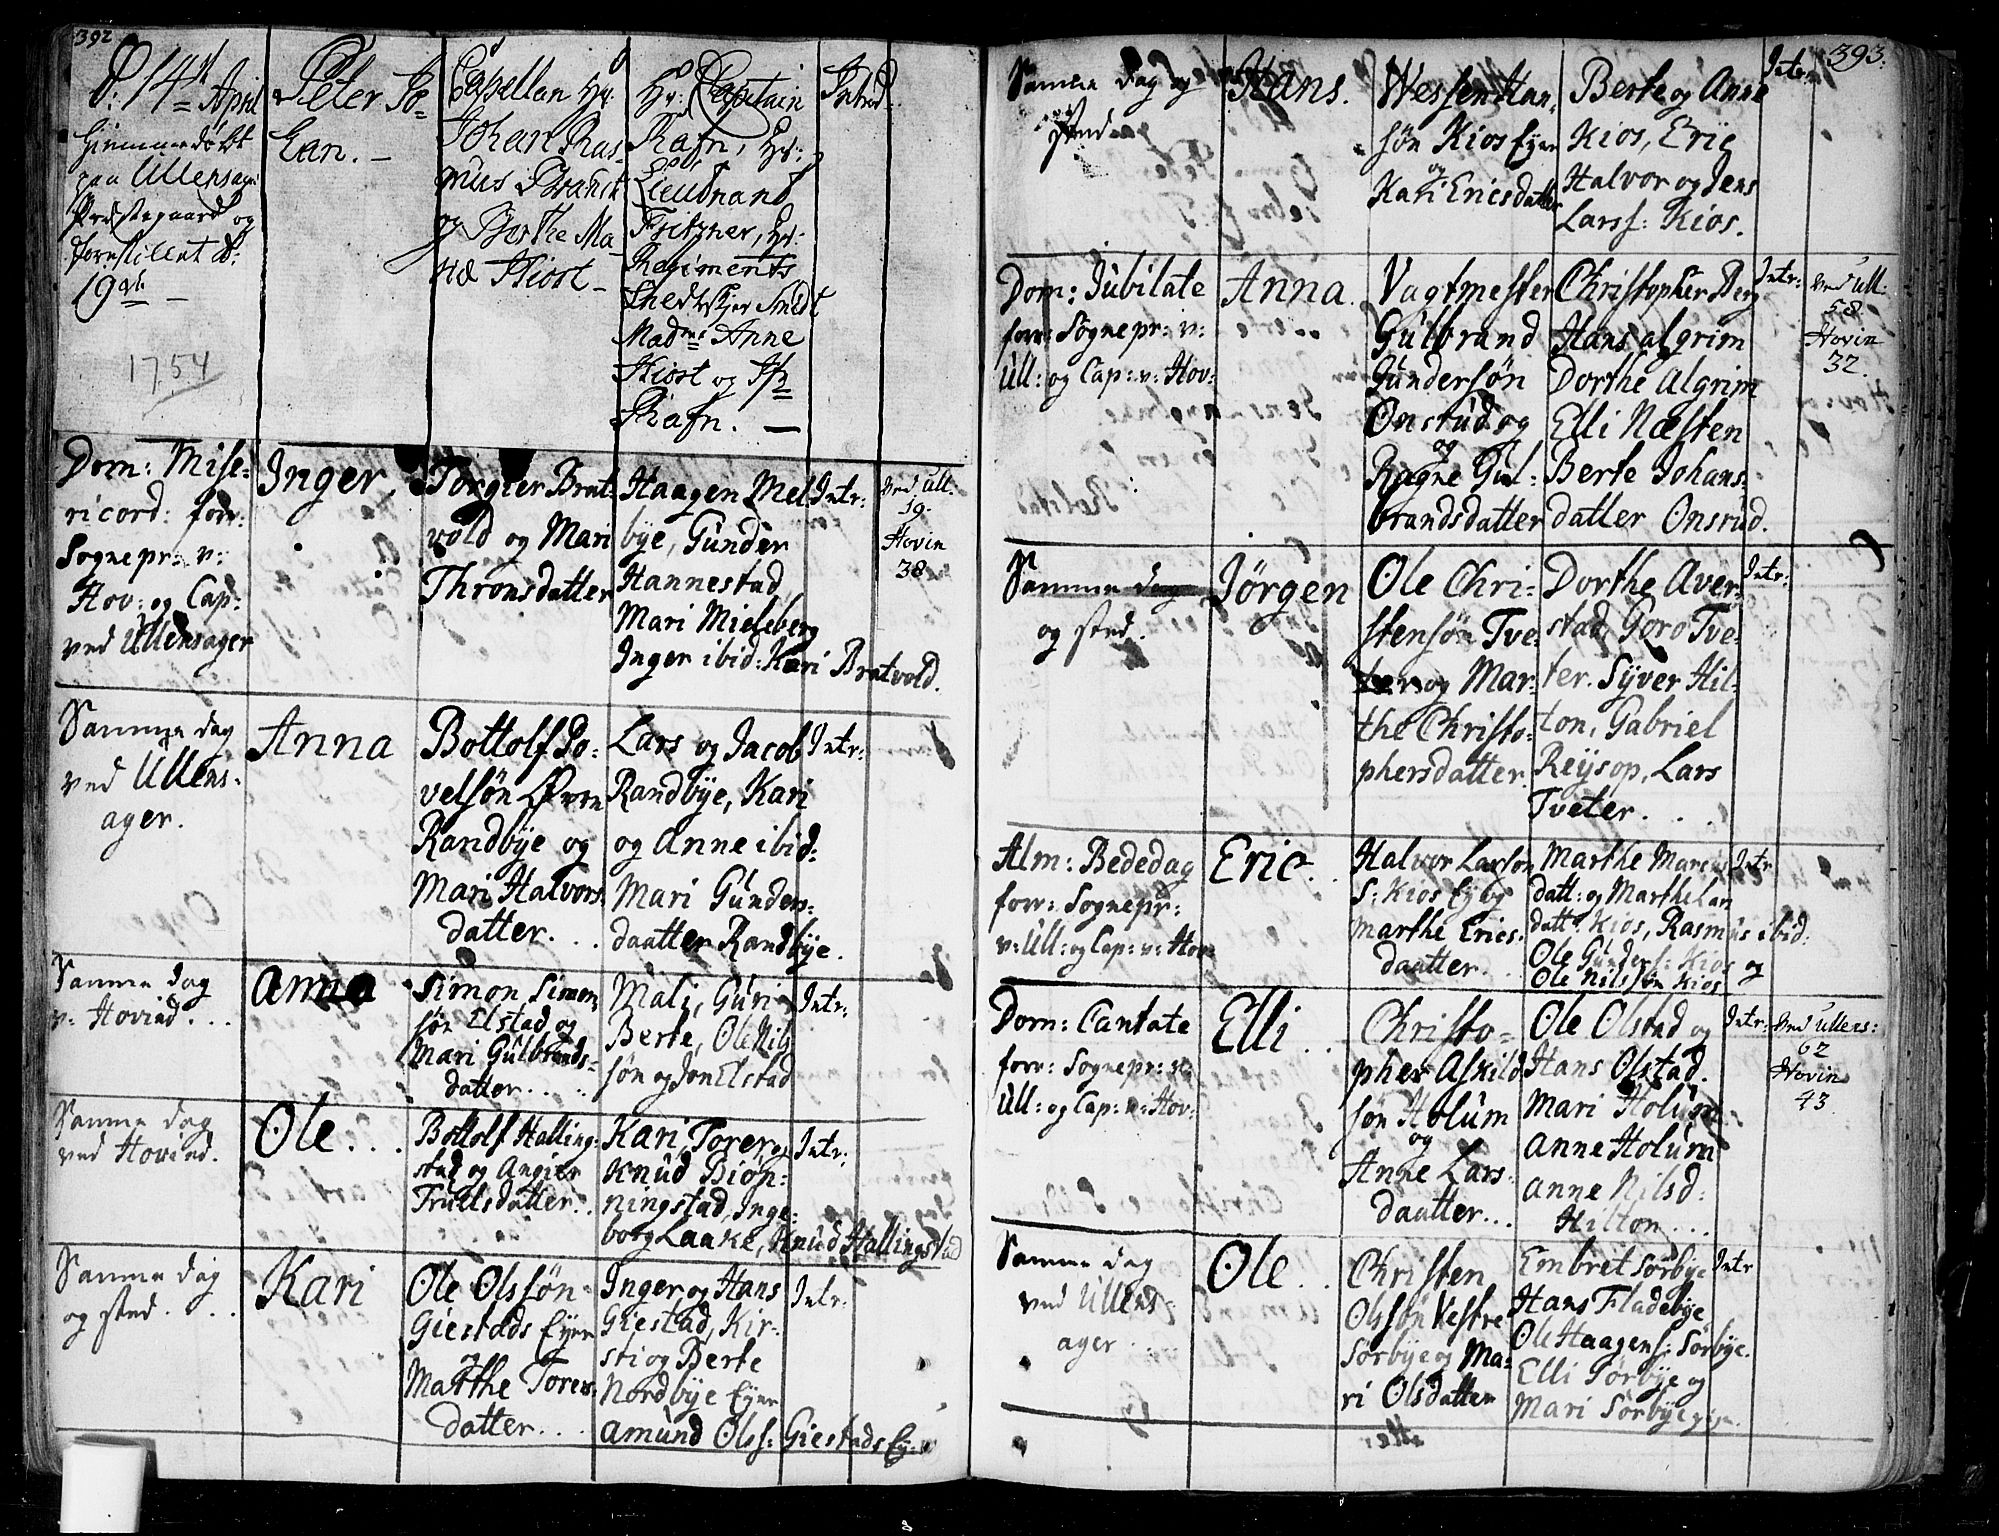 392
d: 14de April
hiemmedöbt
paa Ullensager
Præstegaard og
fremstillet d:
19de
1754
Peter Jo-
han.
Capellan Hr:
Johan Ras-
mus Franck
og Berthe Ma-
ria Kiost
Hr: Captain
Rafn, Hr:
Lieutnant
Fritzner, Hr:
Regiments
Smidt
Madme Anne
Kiost og
Rafn.
Introd:
Dom: Mise-
ricord: forr:
Sognepr: v:
Hov: og Cap:
ved Ullensager
Inger
Torgier Brat-
vold og Mari
Thronsdatter
Haagen Mel-
bye, Gunder
Hannestad,
Mari Mieleberg
Inger ibid: Kari Bratvold.
Intr:
Ved Ull.
59.
Hovin
38.
Samme dag
ved Ullens-
ager.
Anna
Bottolf Po-
velsön Øvre
Randbye og
Mari Halvors-
datter.
Lars og Jacob
Randbye, Kari
og Anne ibid:
Mari Gunders-
daatter Randbye.
Intr:
Samme dag
v: Hovind.
Anna
Simon Simon-
sön Elstad og
Mari Gulbrands-
datter.
Mali, Guri
Berte, Ole Nils-
sön og Jon Elstad
Intr:
Samme dag
ved Hovind.
Ole
Bottolf Halling-
stad og Angier
Truelsdatter.
Kari, Torer og
Knud Biön-
ningstad, Inge-
borg Laake, Knud Hallingstad
Intr:
Samme dag
og sted.
Kari
Ole Olssön
Giestads Eyer
og
Marthe Tores-
datter.
Inger og Hans
Giestad, Kir-
sti og Berte
Nordbye Eyer
Amund Olss: Giestads Ey:
Intr:
393.
Samme dag og
sted
Hans.
Wessen Han-
sön Kios Eyer
og
Kari Ericsdatter
Berte og Anne
Kios, Eric
Halvor og Jens
Larss: Kios.
Intr:
Dom: Jubilate
forr: Sognepr: v:
Ull: og Cap: v: Hov:
Anna.
Vagtmester
Gulbrand
Gundersön
Onsrud og
Ragne Gul-
brandsdatter
Christopher Berg
Hans Algrim
Dorthe Algrim
Elli Næsten
Berte Johans-
datter Onsrud.
Intr:
Ved Ull:
58.
Hovin
32.
Samme dag
og sted.
Jörgen
Ole Chri-
stensön Tve-
ter og Mar-
the Christo-
phersdatter.
Dorthe Aver-
stad, Goro Tve-
ter. Syver Hil-
ton, Gabriel
Reysop, Lars
Tveter.
Intr:
Alm: Bededag
forr: Sognepr:
v: Ull: og Cap: v: Hov:
Eric.
Halvor Larsön
S: Kios Ey og
Marthe Erics-
daatter.
Marthe Marcus
datt: og Marthe Lars
datt: Kios, Rasmus ibid:
Ole Gunders: Kios og
Ole Nilssön Kios
Intr
Dom: Cantate
forr: Sognepr: v:
Ull: og Cap: v: Hov:
Elli
Christo-
pher Askild-
sön Holum
og
Anne Lars-
daatter.
Ole Olstad og
Hans Olstad.
Mari Holum
Anne Holum
Anne Nilsd:
Hilton.
Intr:
Ved Ullens:
62
Hovin
43
Samme dag
ved Ullens-
ager.
Ole
Christen
Olssön Vestre
Sörbye og Ma-
ri Olsdatter
Embret Sörbye
Hans Fladebye
Ole Haagens: Sörbye.
Elli Sörbye og
Mari Sörbye
Intr